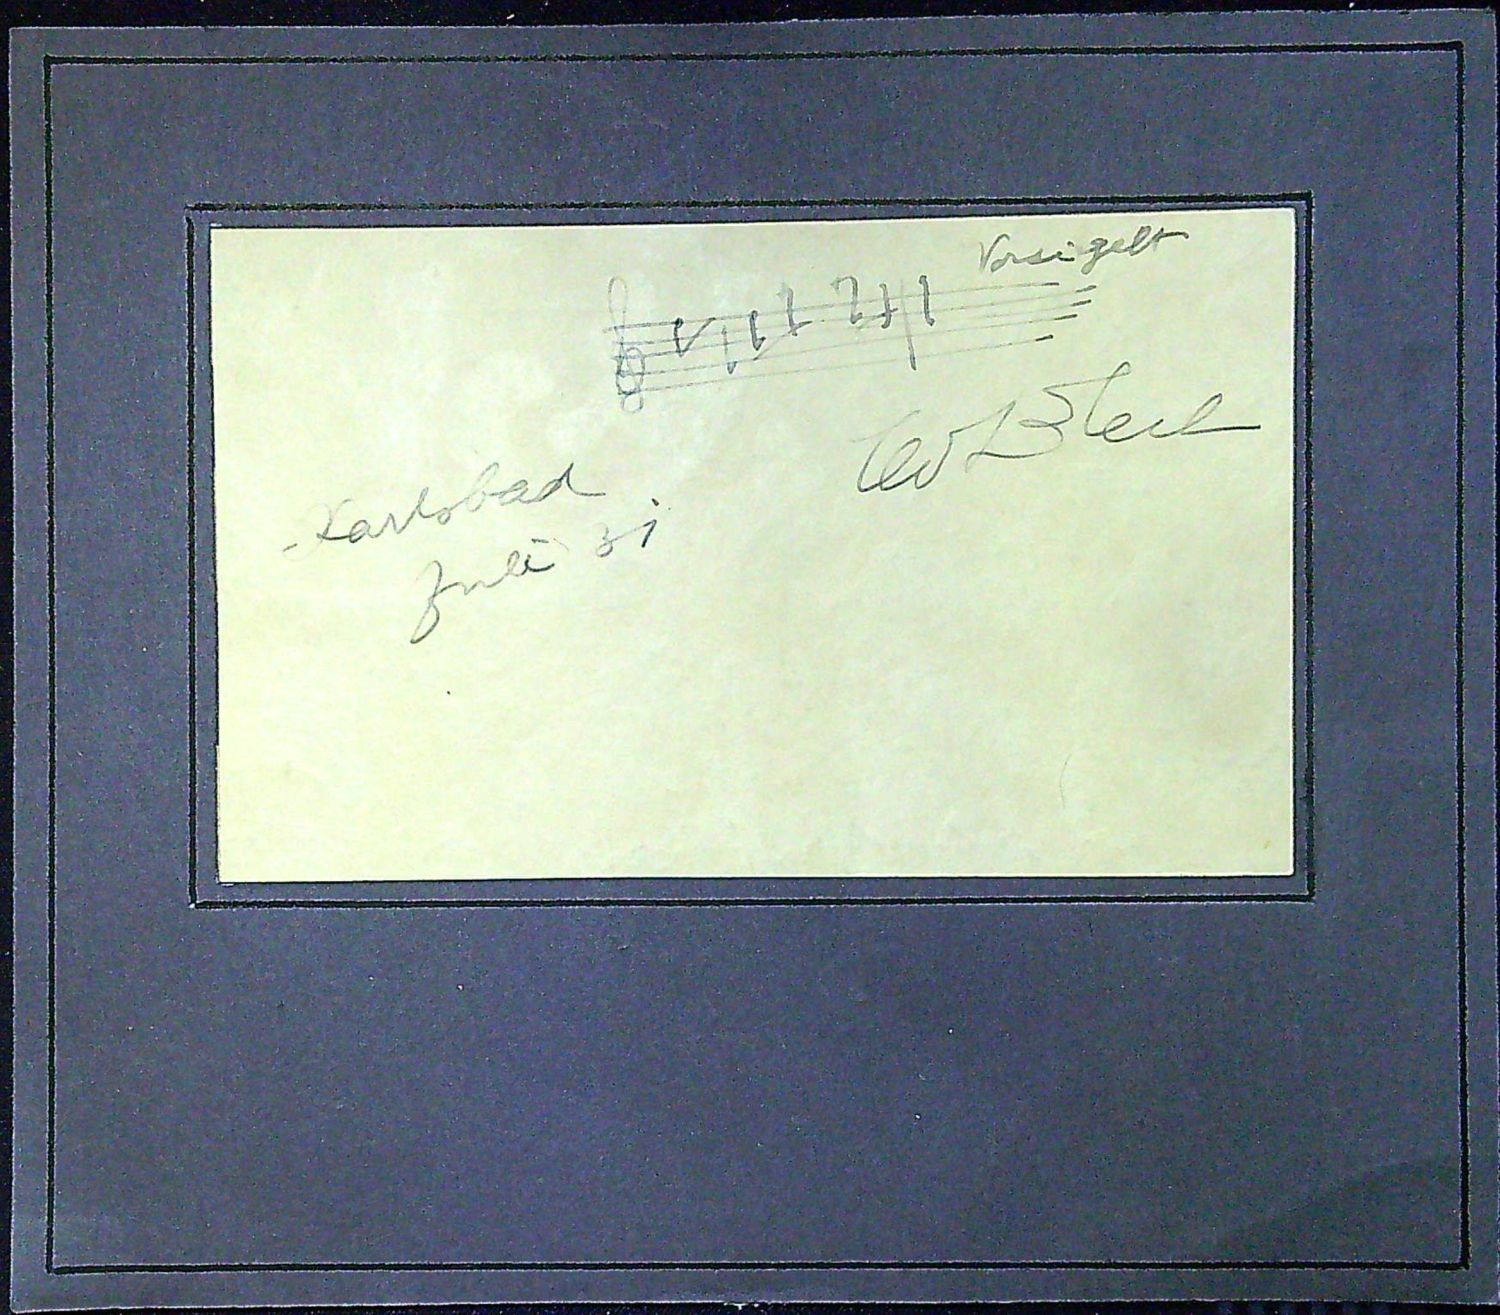 Versiegelt
Leo Blech
Karlsbad
Juli 31